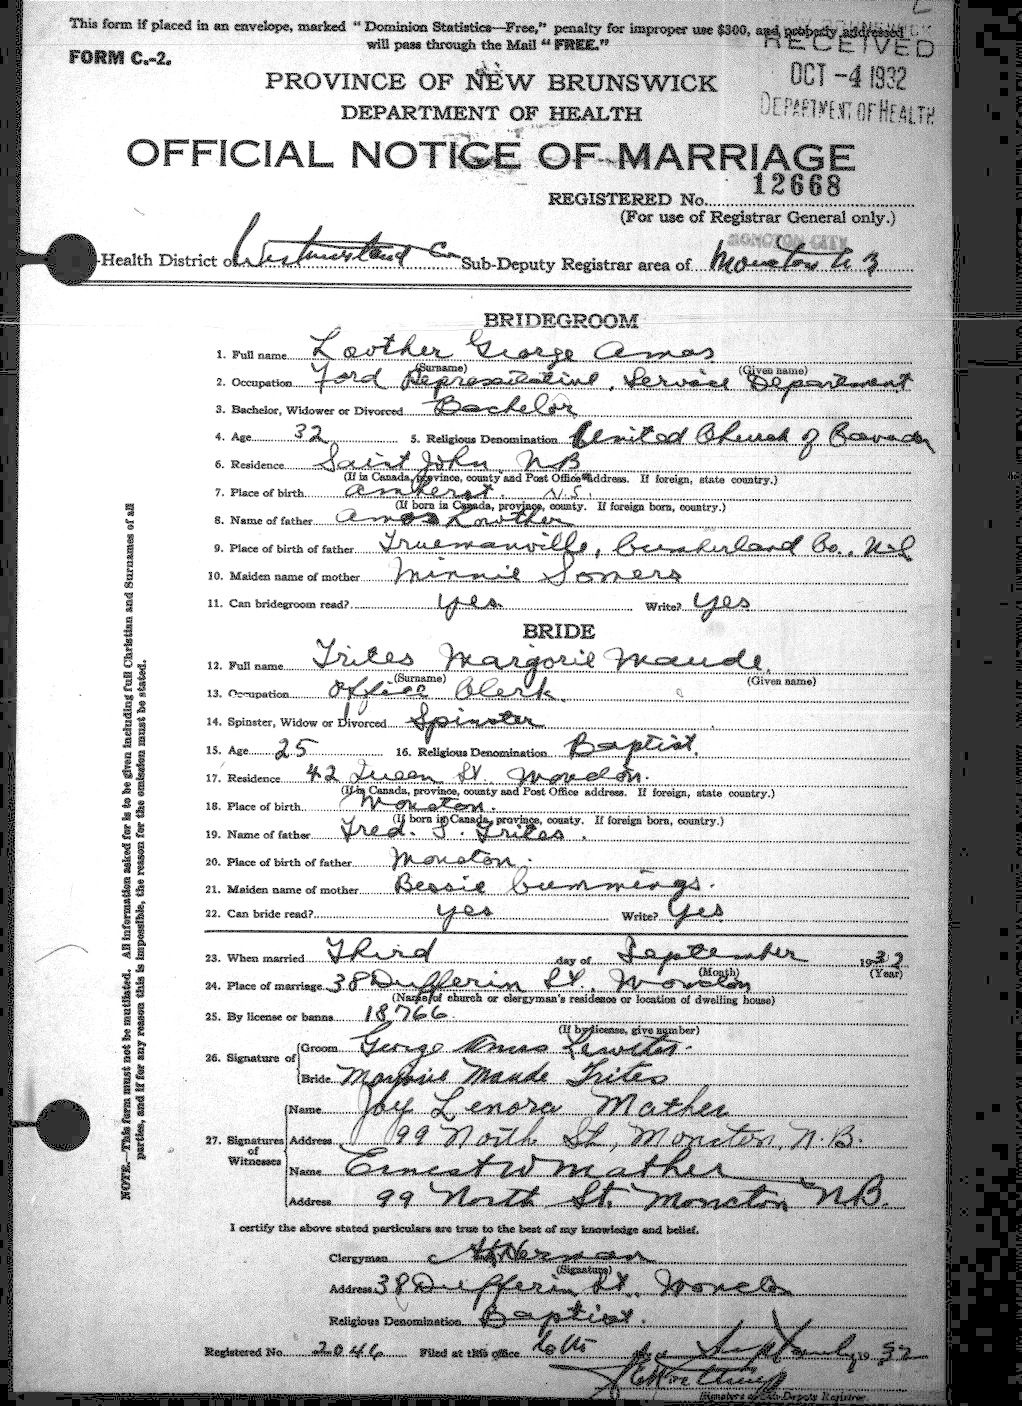 This form if placed in an envelope, marked "Dominion Statistics—Free," penalty for improper use $300, and properly addressed
will pass through the Mail "FREE."
RECEIVED
OCT -4 1932
DEPARTMENT OF HEALTH
FORM C.-2.
PROVINCE OF NEW BRUNSWICK
DEPARTMENT OF HEALTH
OFFICIAL NOTICE OF MARRIAGE
REGISTERED No. 12668
(For use of Registrar General only.)
MONCTON CITY
-Health District of Westmorland Co Sub-Deputy Registrar area of Moncton N 3
BRIDEGROOM
1. Full name Lowther George Amos
(Surname) (Given name)
2. Occupation Ford Representative, Service Department
3. Bachelor, Widower or Divorced Bachelor
4. Age 32 5. Religious Denomination United Church of Canada
6. Residence Saint John, NB
(If in Canada, province, county and Post Office address. If foreign, state country.)
7. Place of birth Amherst. N.S.
(If born in Canada, province, county. If foreign born, country.)
8. Name of father Amos Lowther
9. Place of birth of father Truemanville, Cumberland Co., N.S
10. Maiden name of mother Minnie Somers
11. Can bridegroom read? yes. Write? yes
BRIDE
12. Full name Trites Marjorie Maude.
(Surname) (Given name)
13. Occupation Office Clerk
14. Spinster, Widow or Divorced Spinster
15. Age 25 16. Religious Denomination Baptist.
17. Residence 42 Queen St. Moncton.
(If in Canada, province, county and Post Office address. If foreign, state country.)
18. Place of birth Moncton.
(If born in Canada, province, county. If foreign born, country.)
19. Name of father Fred. S. Trites.
20. Place of birth of father Moncton.
21. Maiden name of mother Bessie Cummings.
22. Can bride read? yes Write? Yes
23. When married Third day of September 1932
(Month) (Year)
24. Place of marriage 38 Dufferin St., Moncton
(Name of church or clergyman's residence or location of dwelling house)
25. By license or banns 18,766.
(If by license, give number)
26. Signature of Groom George Amos Lowther.
Bride Marjorie Maude Trites
27. Signatures of Witnesses
Name Joy Lenora Mather
Address 99 North St., Moncton, N.B.
Name Ernest W Mather
Address 99 North St. Moncton N.B.
I certify the above stated particulars are true to the best of my knowledge and belief.
Clergyman Herman
(Signature)
Address 38 Dufferin St., Moncton
Religious Denomination Baptist.
Registered No. 2046 Filed at this office 6th 1932
Signature of Sub-Deputy Registrar
NOTE.—This form must not be mutilated. All information asked for is to be given including full Christian and Surnames of all
parties, and if for any reason this is impossible, the reason for the omission must be stated.